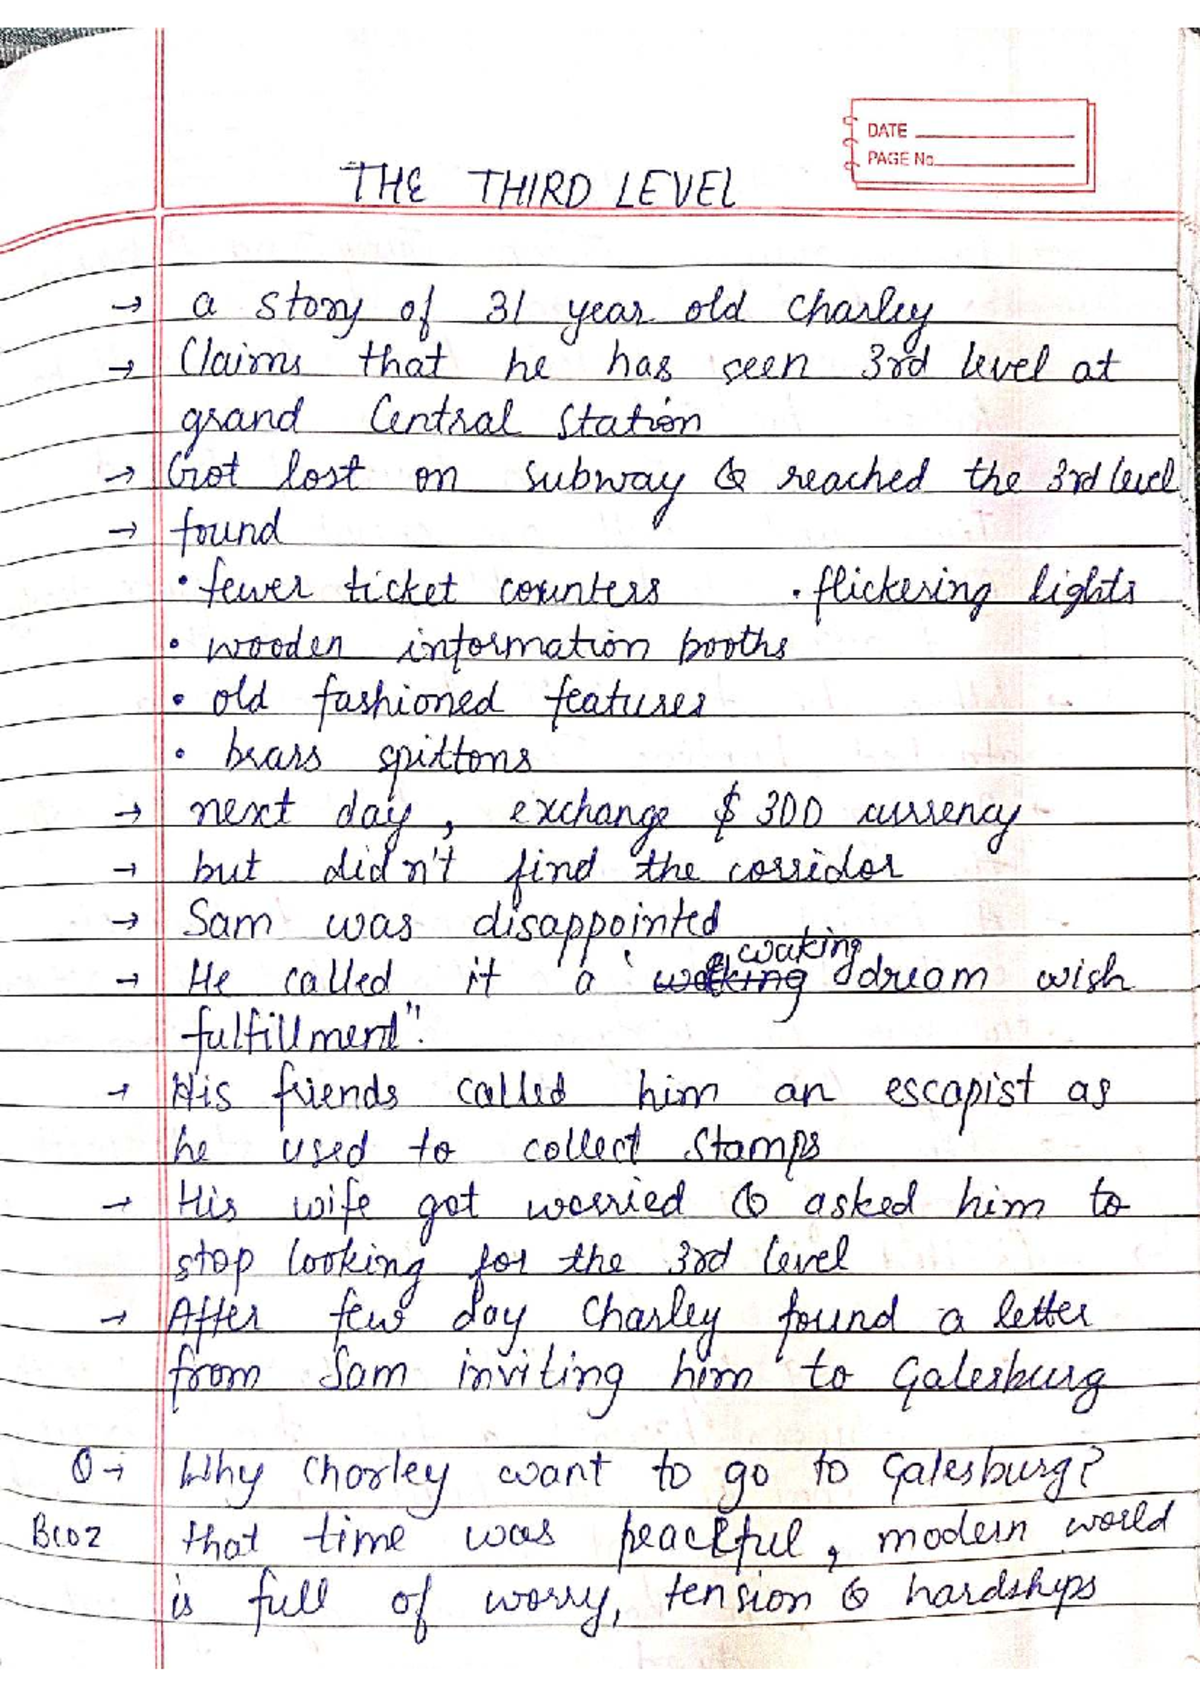 DATE
PAGE No.
THE THIRD LEVEL
→ a story of 31 year old Charley
→ Claims that he has seen 3rd level at
grand Central Station
→ Got lost on subway & reached the 3rd level
→ found
• fewer ticket counters • flickering lights
• wooden information booths
• old fashioned features
• brass spittons
→ next day, exchange $300 currency
→ but didn't find the corridor
→ Sam was disappointed
waking
→ He called it a ' dream wish
fulfillment".
→ His friends called him an escapist as
he used to collect stamps
→ His wife got worried & asked him to
stop looking for the 3rd level
→ After few day Charley found a letter
from Sam inviting him to Galesburg
Q→ Why Charley want to go to Galesburg?
BCOZ that time was peaceful, modern world
is full of worry, tension & hardships